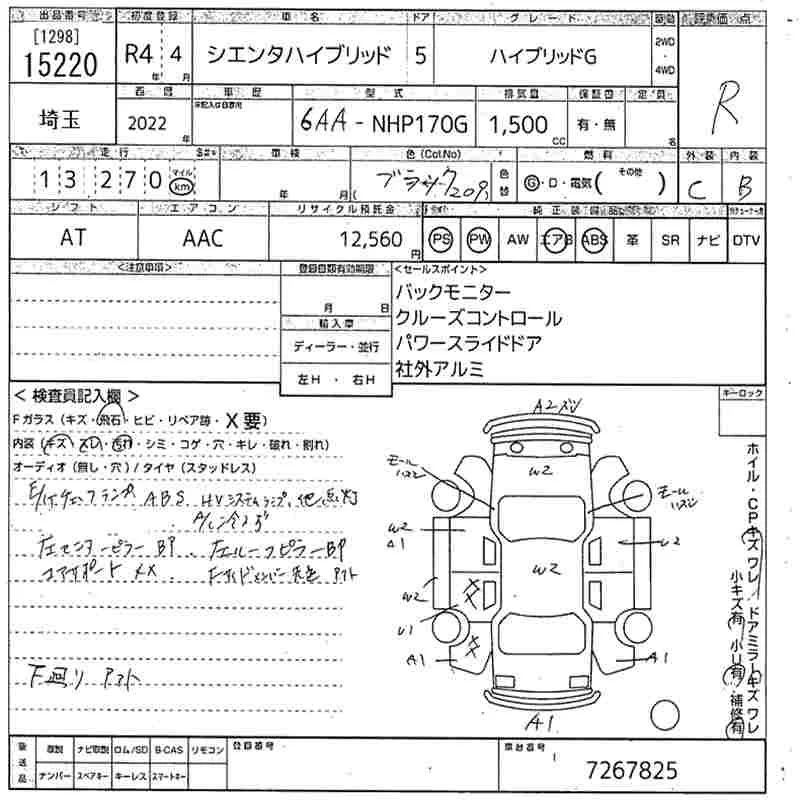 出品番号 初度登録 車名 ドア グレード 駆動 評価点
[1298]
15220 R4年 4月 シエンタハイブリッド 5 ハイブリッドG 2WD・4WD R
西暦 車歴 型式 排気量 保証書 定員
埼玉 2022年 6AA-NHP170G 1,500cc 有・無 名
走行 車検 色(Col.No) 燃料 外装 内装
13 270 マイル km 年 月 ブラック209 色替 G・D・電気( その他 ) C B
シフト エアコン リサイクル預託金 純正装備品
AT AAC 12,560円 PS PW AW エアB ABS 革 SR ナビ DTV
<注意事項> 登録自賠有効期限 <セールスポイント>
月 日
バックモニター
輸入車
クルーズコントロール
ディーラー・並行
パワースライドドア
左H・右H
社外アルミ
<検査員記入欄> キーロック
Fガラス(キズ・飛石・ヒビ・リペア跡・X要)
内装(キズ・ヌレ・汚れ・シミ・コゲ・穴・キレ・破れ・割れ)
オーディオ(無し・穴)/タイヤ(スタッドレス)
E/Gチェックランプ ABS HVシステムランプ、他点灯
A/C冷えず
左センターピラーBP、左ルーフピラーBP
コアサポートXX、
下回りアト
A2ズレ
W2
モールハズレ
モールハズレ
W2
A1
W2
W2
W2
U1
XX
XX
A1
A1
A1
ホイル・CPキズワレ ドアミラーキズワレ
小キズ有 小U有 補修有
発送品 取説 ナビ取説 ロム/SD B-CAS リモコン 登録番号 車台番号
ナンバー スペアキー キーレス スマートキー
7267825